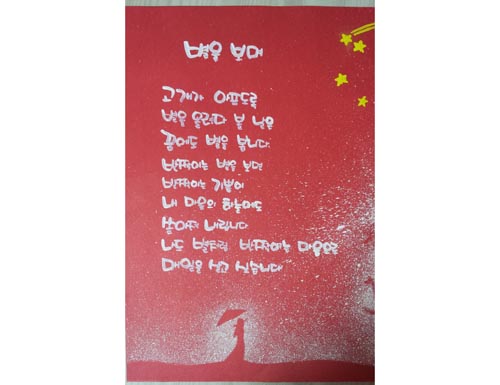 별을 보며
고개가 아프도록
별을 올려다 본 날은
꿈에도 별을 봅니다
반짝이는 별을 보면
반짝이는 기쁨이
내 마음의 하늘에도
쏟아져 내립니다
나도 별처럼 반짝이는 마음으로
매일을 살고 싶습니다